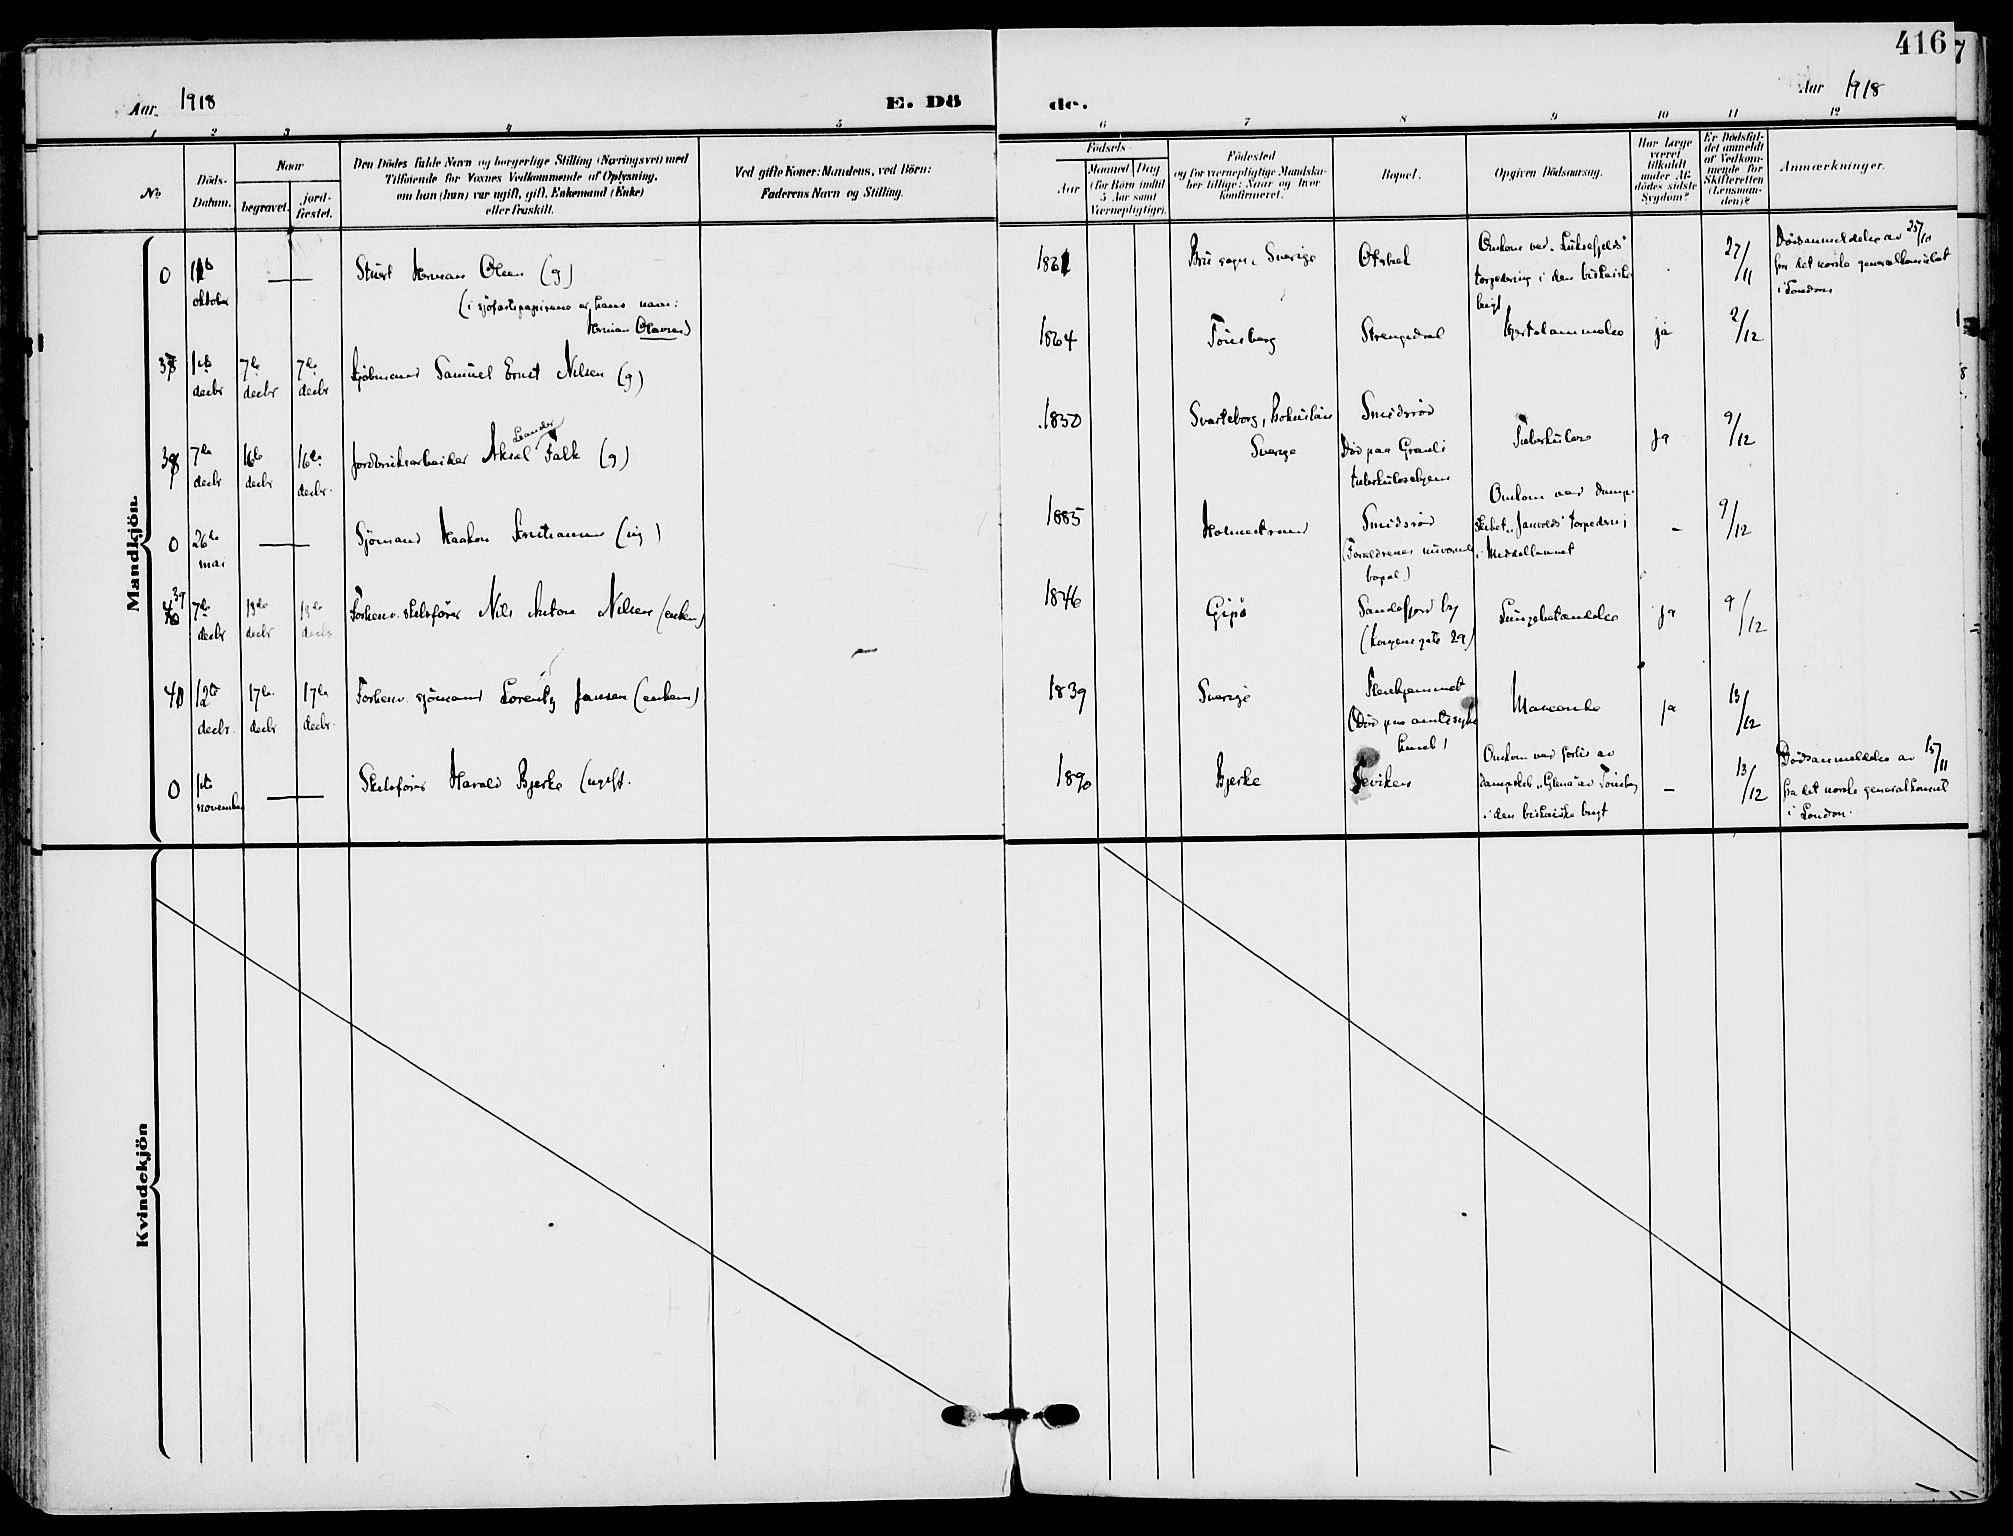 416
Aar 1918
E. Dö
de.
Aar 1918
1 2 3 4 5 6 7 8 9 10 11 12
No
Döds-
Datum.
Naar
begravet.
jord-
fæstet.
Den Dödes fulde Navn og borgerlige Stilling (Næringsvei) med
Tilföiende for Voxnes Vedkommende af Oplysning,
om han (hun) var ugift, gift, Enkemand (Enke)
eller fraskilt.
Ved gifte Koner: Mandens, ved Börn:
Faderens Navn og Stilling.
Födsels-
Aar
Maaned Dag
(for Börn indtil
5 Aar samt
Værnepligtige).
Födested
og for værnepligtige Mandska-
ber tillige: Naar og hvor
konfirmeret.
Bopæl.
Opgiven Dödsaarsag.
Har Læge
været
tilkaldt
under Af-
dödes sidste
Sygdom?
Er Dödsfal-
det anmeldt
af Vedkom-
mende for
Skifteretten
(Lensman-
den)?
Anmærkninger.
Mandkjön.
0
oktober
Stuert Herman Olsen (g)
(i sjöfartspapirene er hans navn:
Herman Olavsen)
1861
Sverige
Omkom ved
torpedering i den biskaiske
bugt
27/11
Dödsanmeldelse av 25/10
fra det norske generalkonsulat
i London
38
1ste decbr
7de decbr
7de decbr
Kjöbmand Samuel Ernst Nilsen (g)
1864
Tönsberg
Hjertelammelse
ja
2/12
7de decbr
16de decbr
16de decbr.
Jordbruksarbeider Aksel Leander Falk (g)
1850
Svarteborg, Bohuslän
Sverige
Smidsröd
Död paa Granli
tuberkulosehjem
Tuberkulose
ja
9/12
0
26de mai
Sjömand Haakon Kristiansen (ug)
1885
Holmestrand
Smidsröd
(Foreldrenes nuværende
bopæl)
Omkom ved damp-
skibet torpedering
i Middelhavet
–
9/12
39
7de decbr
13de decbr
13de decbr
Forhenv. skibsförer Nils Anton Nilsen (enkem)
1846
Gipö
Sandefjord by
(Kongens gate 29)
Lungebetændelse
ja
9/12
40
12te decbr.
17de decbr
17de decbr.
Forhenv. sjömand Lorentz Jansen (enkem)
1839
Sverige
Pleiehjemmet
(Död paa amtssyke-
huset)
ja
13/12
0
1ste november
Skibsförer Harald Bjerke (ugift.
1890
Bjerke
Omkom ved forlis av
dampskib „Glenö" av Tönsberg
i den biskaiske bugt
–
13/12
Dödsanmeldelse av 15/11
fra det norske generalkonsul
i London.
Kvindekjön